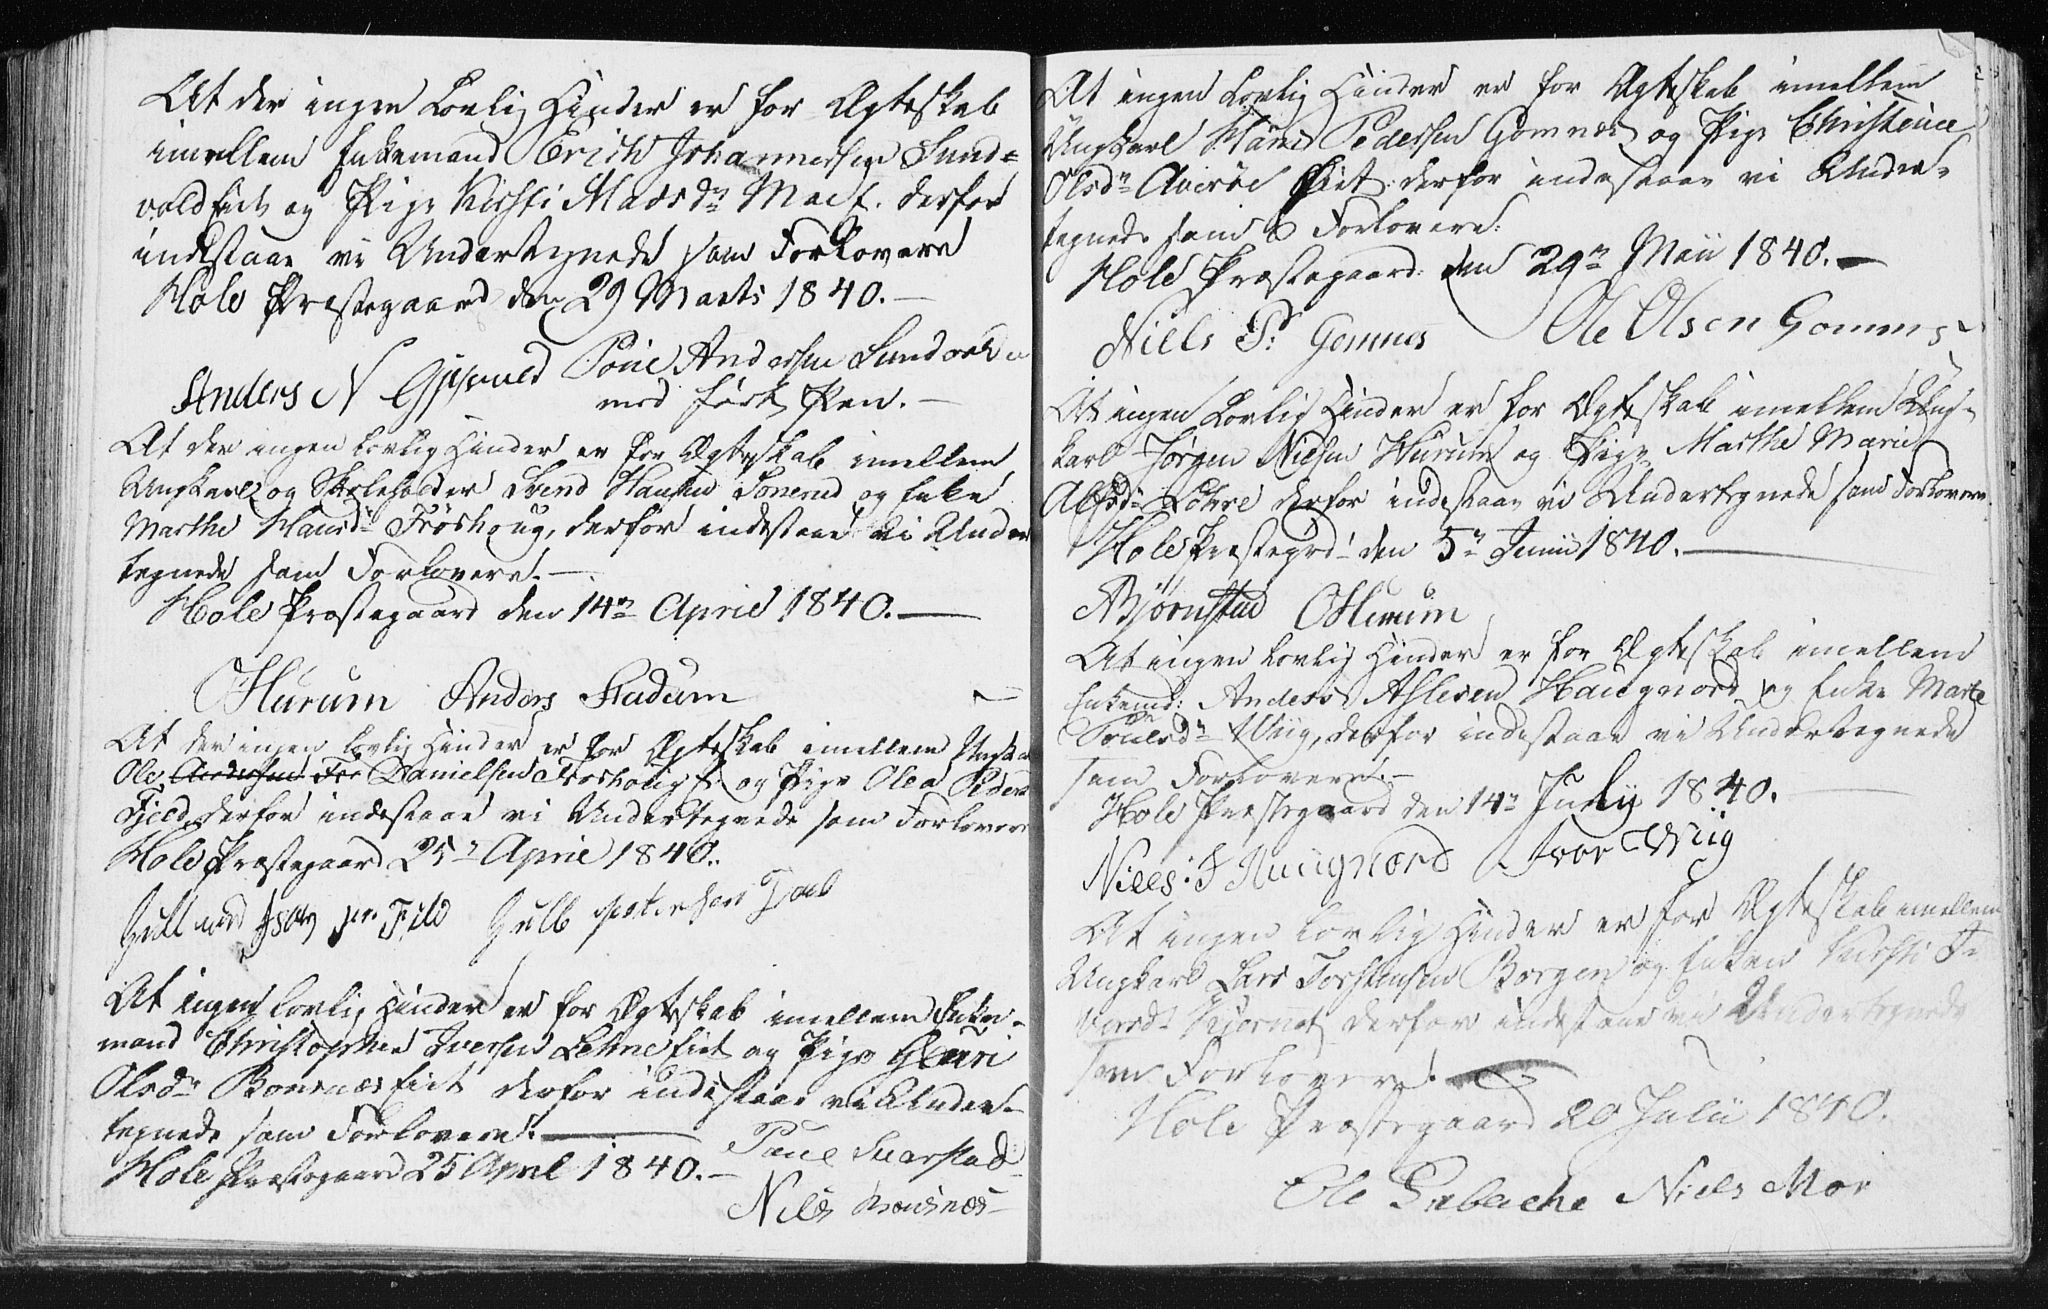 At der ingen Lovlig Hinder er for Ægteskab
imellem Enkemand Erich Johannersen Sund=
vold Eie og Pige Kirsti Madsdr derfor
indestaar vi Undertegnede som Forlovere
Hole Præstegaard den 29 Marts 1840.—
Anders N Gjesvold Poul Andersen Sundvolden
med ført Pen.—
At der ingen lovlig Hinder er for Ægteskab imellem
Ungkarl og Skoleholder Svend Hansen Sonerud og Enke
Marthe Hansdr Frøshoug, derfor indestaar vi Under
tegnede som Forlovere.—
Hole Præstegaard den 14de April 1840.—
OHurum Anders Stadum
At der ingen lovlig Hinder er for Ægteskab imellem Ungkarl
Ole Danielsen og Pige Olea Peders
Fjeld, derfor indestaar vi Undertegnede som Forlovere
Hole Præstegaard 25de April 1840.
Gulb
At ingen lovlig Hinder er for Ægteskab imellem Enke-
mand Christopher Iversen Lehne Eiet og Pige Guri
Olsdr Bonsnæs Eiet derfor indestaar vi Under-
tegnede som Forlovere.—
Hole Præstegaard 25 April 1840.—
Poul Svarstad
Niels Bonsnæs
At ingen Lovlig Hinder er for Ægteskab imellem
Ungkarl Hans Pedersen Gomnæs og Pige Christence
Olsdr Averøe Eiet derfor indestaar vi Under-
tegnede som Forlovere.
Hole Præstegaard den 29de Maii 1840.—
Niels P: Gomnes Ole Olsen Gomnes
At ingen Lovlig Hinder er for Ægteskab imellem Ung-
karl Jørgen Nielsen Hurum og Pige Marthe Marie
Alfsdr Løhre derfor indestaar vi Undertegnede som Forlovere
Hole Præstegrd: den 5te Junii 1840.—
ABjørnstad OHurum
At ingen lovlig Hinder er for Ægteskab imellem
Enkemd: Anders Aslesen Haugnord og Enke Marte
Poulsdr Wiig, derfor indestaar vi Undertegnede
som Forlovere.—
Hole Præstegaard den 14de July 1840.
Niels: Huugnord Iver Wiig
At ingen lovlig Hinder er for Ægteskab imellem
Ungkarl Lars Torstensen Borgen og Enken Kirsti I-
versdr derfor indestaar vi Undertegnede
som Forlovere.
Hole Præstegaard 20 Julii 1840.
Ole Niels Moe